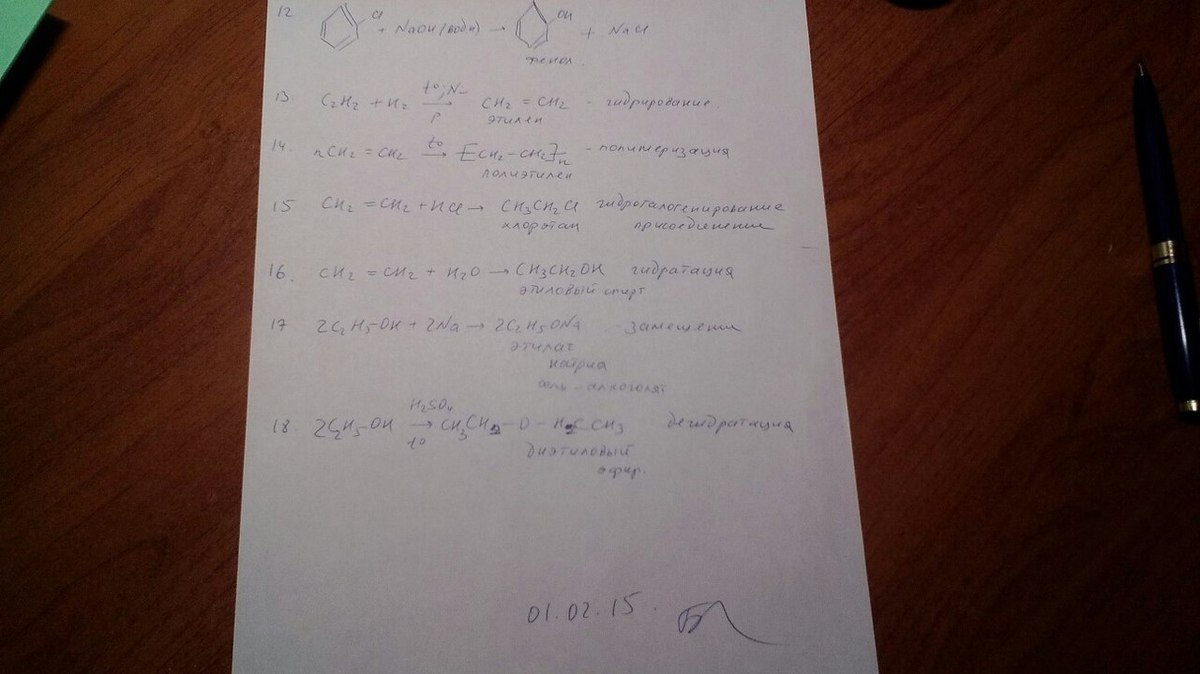 12 Cl + NaOH (водн) → OH + NaCl
фенол.
13. C2H2 + H2 → CH2 = CH2 - гидрирование.
этилен
14. nCH2 = CH2 t° → [CH2-CH2]n - полимеризация
полиэтилен
15 CH2 = CH2 + HCl → CH3CH2Cl гидрогалогенирование
хлорэтан присоединение
16. CH2 = CH2 + H2O → CH3CH2OH гидратация
этиловый спирт
17 2C2H5OH + 2Na → 2C2H5ONa - замещение
этилат
натрия
соль - алкоголят
H2SO4
18. 2C2H5OH → CH3CH2 - O - H2C CH3 дегидратация
t°
диэтиловый
эфир.
01.02.15.